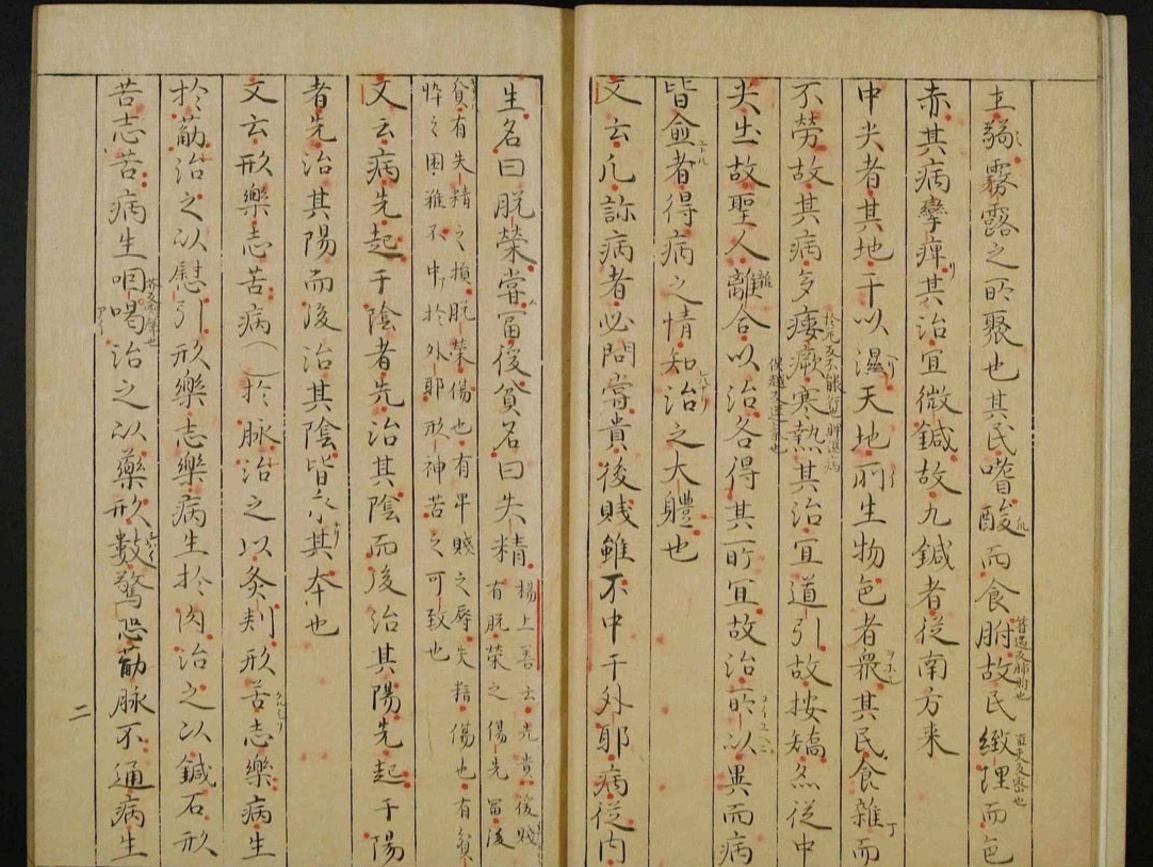 土弱霧露之所聚也其民嗜酸而食胕故民緻理而色
赤其病攣痺其治宜微鍼故九鍼者従南方来
中央者其地干以濕天地所生物色者衆其民食雜而
不勞故其病多痿厥寒熱其治宜道引故按蹻亦従中
央出故聖人離合以治各得其所宜故治所以異而病
皆愈者得病之情知治之大體也
文云凡診病者必問嘗貴後賤雖不中于外耶病従内
生名曰脱榮嘗冨後貧名曰失精楊上善云先貴後賤
有脱榮之傷先冨後
貧有失精之損脱榮傷也有卑賤之辱失精傷也有貧
悴之困雖不中於外耶形神苦之可致也
文云病先起于陰者先治其陰而後治其陽先起于陽
者先治其陽而後治其陰皆求其本也
文云形樂志苦病〻於脉治之以灸刺形苦志樂病生
於筋治之以慰引形樂志樂病生於肉治之以鍼石形
苦志苦病生咽喝治之以藥形數驚恐筋脉不通病生
二